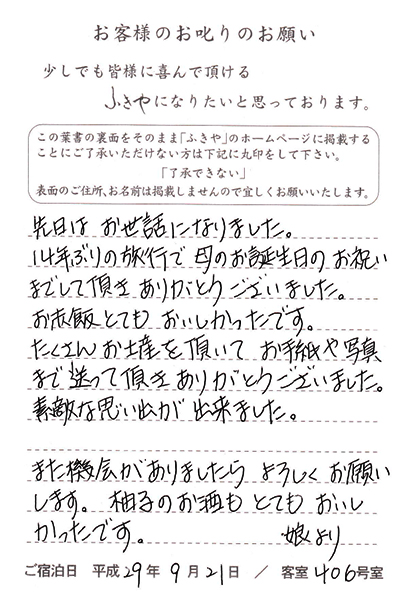 お客様のお叱りのお願い
少しでも皆様に喜んで頂ける
ふきやになりたいと思っております。
この葉書の裏面をそのまま「ふきや」のホームページに掲載する
ことにご了承いただけない方は下記に丸印をして下さい。
「了承できない」
表面のご住所、お名前は掲載しませんので宜しくお願いいたします。
先日は お世話になりました。
14年ぶりの旅行で 母のお誕生日の お祝い
までして頂き ありがとう ございました。
お赤飯とても おいしかったです。
たくさん お土産を 頂いて お手紙や 写真
まで 送って 頂き ありがとうございました。
素敵な思い出が 出来ました。
また機会がありましたら よろしく お願い
します。 柚子のお酒も とても おいし
かったです。 娘より
ご宿泊日 平成29年 9月21日 / 客室 406号室